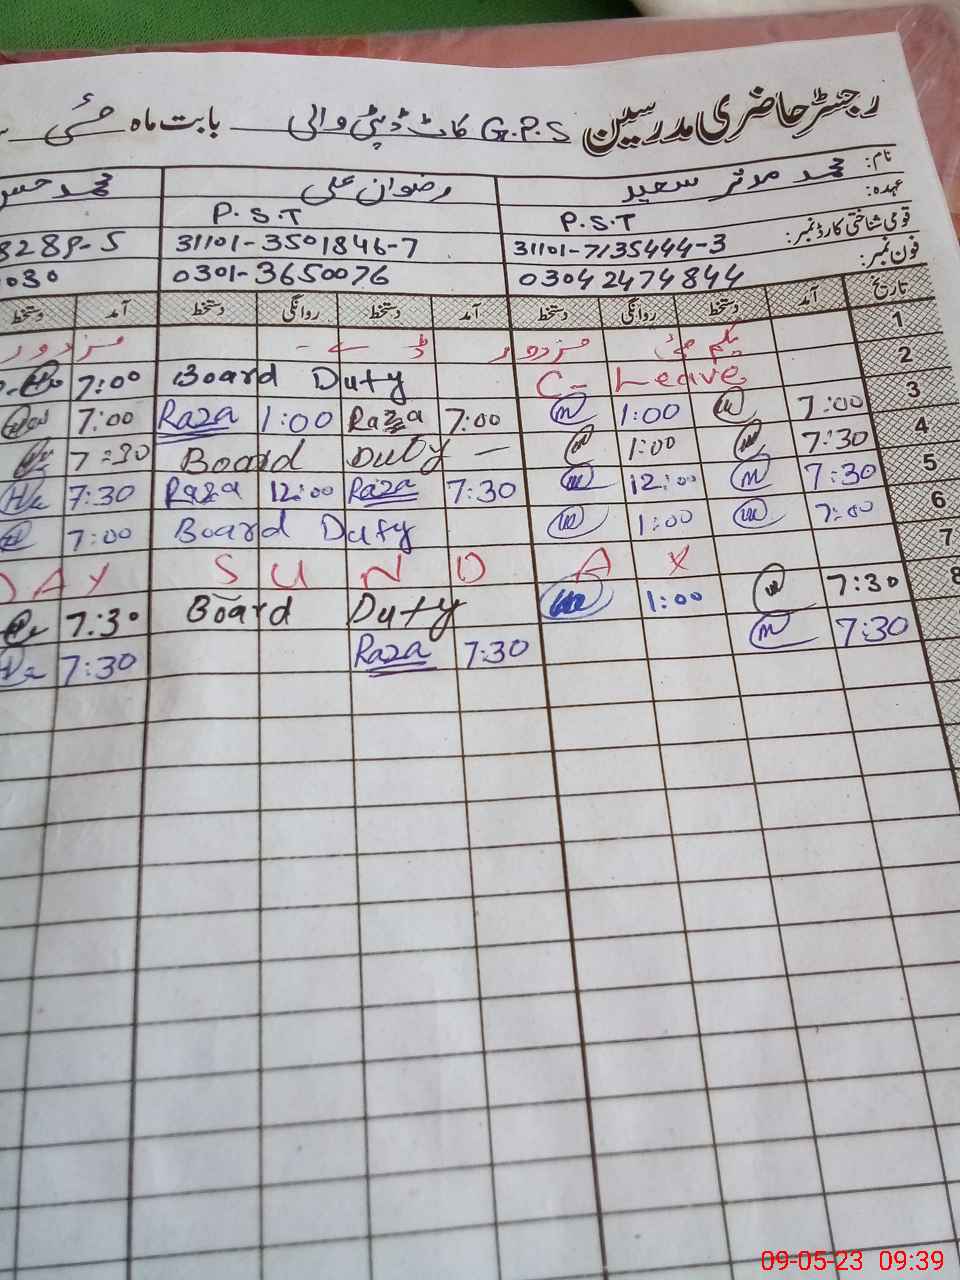 رجسٹر حاضری مدرسین G.P.S کاٹ ڈپٹی والی بابت ماہ مئی
نام: محمد مدثر سعید رضوان علی محمد حسن
عہدہ: P.S.T P.S.T
قومی شناختی کارڈ نمبر: 31101-7135444-3 31101-3501846-7 8289-5
فون نمبر: 03042474844 0301-3650076 030
تاریخ آمد دستخط روانگی دستخط آمد دستخط روانگی دستخط آمد دستخط
1 یکم مئی مزدور ڈے - مزدور
2 C- Leave Board Duty 7:00
3 7:00 1:00 7:00 Raza 1:00 Raza 7:00
4 7:30 1:00 Board Duty - 7:30
5 7:30 12:00 7:30 Raza 12:00 Raza 7:30
6 7:00 1:00 Board Duty 7:00
7 SUNDAY DAY
8 7:30 1:00 Board Duty 7:30
7:30 7:30 Raza 7:30
09-05-23 09:39